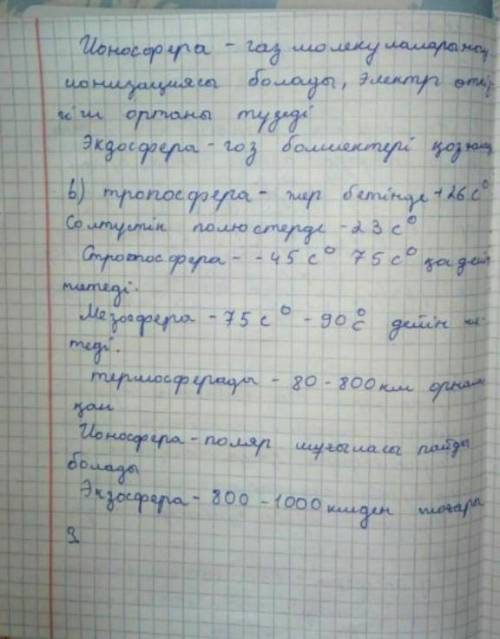 Ионосфера - газ молекулаларының
ионизациясы болады, электр өткіз
гіш ортаны түзеді
Экдосфера - газ бөлшектері қозғ
b) тропосфера - жер бетінде +26 c°
Солтүстік полюстерде -23 c°
Стротосфера - -45 c° 75 c° қа дейін
жетеді.
Мезосфера - 75 c° - 90 c° дейін же
теді.
термосферады - 80 - 800 км орнал
қан
Ионосфера - поляр шұғыласы пайда
болады
Экзосфера - 800 - 1000 км ден жоғары